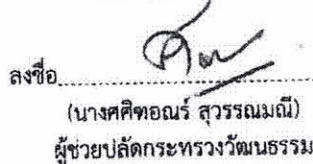 ลงชื่อ
(นางศศิฑอณร์ สุวรรณมณี)
ผู้ช่วยปลัดกระทรวงวัฒนธรรม